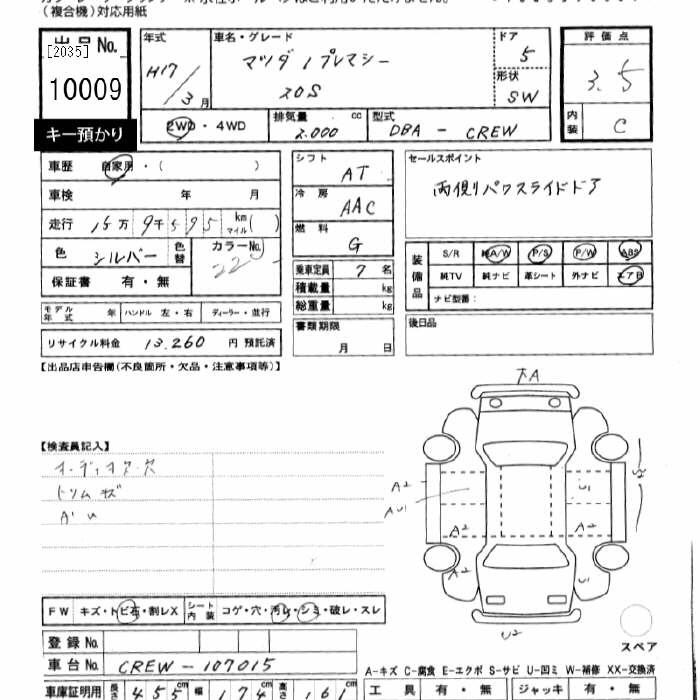 （複合機）対応用紙
出品No. [2035]
10009
キー預かり
年式
H17/3月
車名・グレード
マツダ プレマシー
20S
ドア
5
形状
SW
評価点
3.5
内装
C
2WD・4WD
排気量 2.000 cc
型式 DBA-CREW
車歴 自家用・( )
車検 年 月
走行 15万9千595 km マイル( )
色 シルバー 色替
カラーNo.
保証書 有・無
シフト AT
冷房 AAC
燃料 G
乗車定員 7名
積載量 kg
総重量 kg
書類期限
月 日
セールスポイント
両側パワスライドドア
装備品
S/R 純A/W P/S P/W ABS
純TV 純ナビ 革シート 外ナビ エアB
ナビ型番：
後日品
モデル年式 年 ハンドル 左・右 ディーラー・並行
リサイクル料金 13.260 円 預託済
【出品店申告欄(不良箇所・欠品・注意事項等)】
【検査員記入】
トリムキズ
下A
A2
AU1
U1
A2
A2
A2
U1
U2
FW キズ・トビ石・割レX シート内装 コゲ・穴・汚レ・シミ・破レ・スレ
登録No.
車台No. CREW-107015
スペア
A-キズ C-腐食 E-エクボ S-サビ U-凹ミ W-補修 XX-交換済
車庫証明用 長さ 455cm 幅 174cm 高さ 161cm
工具 有・無 ジャッキ 有・無